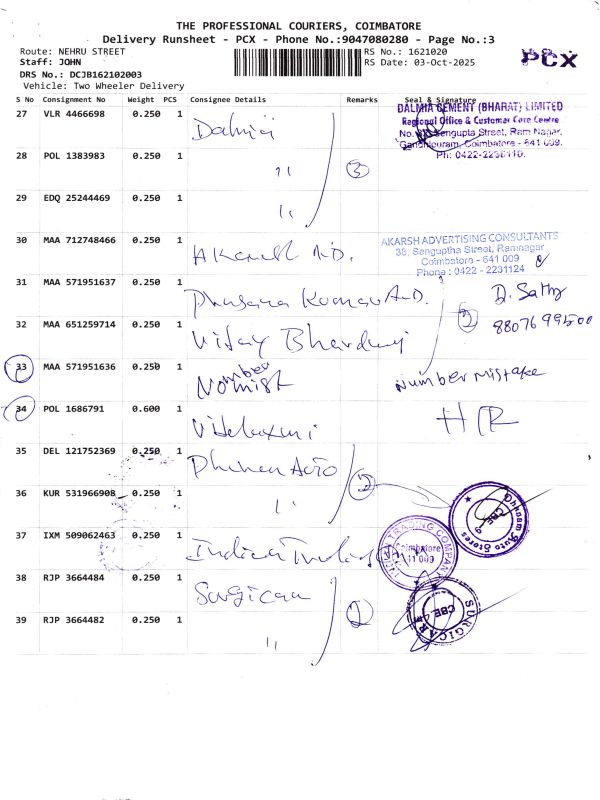 THE PROFESSIONAL COURIERS, COIMBATORE
Delivery Runsheet - PCX - Phone No.:9047080280 - Page No.:3
Route: NEHRU STREET RS No.: 1621020
Staff: JOHN RS Date: 03-Oct-2025
PCX
DRS No.: DCJB162102003
Vehicle: Two Wheeler Delivery
S No Consignment No Weight PCS Consignee Details Remarks Seal & Signature
27 VLR 4466698 0.250 1 Dalmia
DALMIA CEMENT (BHARAT) LIMITED
Regional Office & Customer Care Centre
Sengupta Street, Ram Nagar,
Gandhipuram, Coimbatore - 641 009.
Ph: 0422-2236110.
28 POL 1383983 0.250 1 " 3
29 EDQ 25244469 0.250 1 "
30 MAA 712748466 0.250 1
AKARSH ADVERTISING CONSULTANTS
38, Senguptha Street, Ramnagar
Coimbatore - 641 009
Phone : 0422 - 2231124
31 MAA 571951637 0.250 1 D. Sathy
32 MAA 651259714 0.250 1 Vijay 2 8807699500
33 MAA 571951636 0.250 1 Number Mistake
34 POL 1686791 0.600 1
35 DEL 121752369 0.250 1 Auto 2
36 KUR 531966908 0.250 1 "
Dhanam Auto Stores CBE 9
37 IXM 509062463 0.250 1 India
INDIA TRADING COMPANY
Coimbatore
641 009
38 RJP 3664484 0.250 1 Surgicare 2
39 RJP 3664482 0.250 1 "
SURGICARE CBE